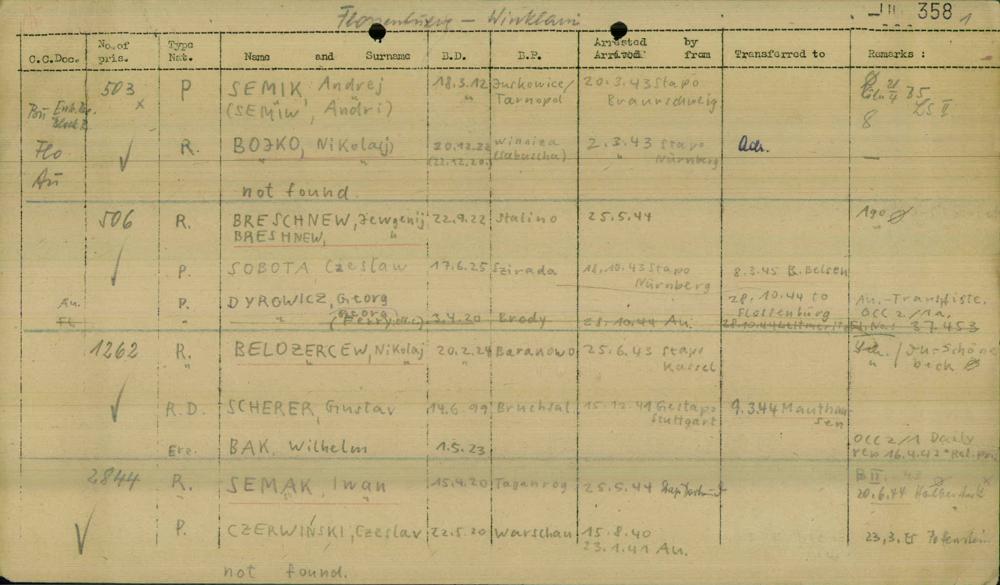 Flossenbürg – Winklarn
358
1
C.C.Doc. No. of pris. Type Nat. Name and Surname B.D. B.P. Arrested by Arrived from Transferred to Remarks :
503 P SEMIK, Andrej 18.3.12 Juskowice/ 20.3.43 Stapo
x (SEMIW, Andri) " Tarnopol Braunschweig 35
8
Flo R. BOJKO, Nikolaj) 20.12.22 Winniza 2.3.43 Stapo
Au " " (22.12.20.) " Nürnberg —
not found.
506 R. BRESCHNEW, Jewgenij 22.9.22 Stalino 25.5.44
BRESHNEW, "
P. SOBOTA Czeslaw 17.6.25 Szirada 18.10.43 Stapo 8.3.45 B. Belsen
Nürnberg
Au. P. DYROWICZ, Georg 28.10.44 to Au.-Transpliste.
Georg Flossenburg OCC 2/1a.
Fl. " " 3.4.20 Brody 28.10.44 Au. 28.10.44 Leitmeritz Fl. No. 37.453
1262 R. BELOZERCEW, Nikolaj 20.2.24 Baranowo 25.6.43 Stapo Schöne
" " " " " Kassel " beck
R.D. SCHERER, Gustav 14.6.99 Bruchsal 15.12.41 Gestapo 9.3.44 Mauthau-
Stuttgart sen
BAK, Wilhelm 1.5.23 OCC 2/1 Daily
16.4.42
2844 R. SEMAK, Iwan 15.4.20 Taganrog 25.5.44 B II.
" " 20.6.44 Halberstadt
P. CZERWIŃSKI, Czeslav 22.5.20 Warschau 15.8.40 23.3.
" 23.1.41 Au.
not found.